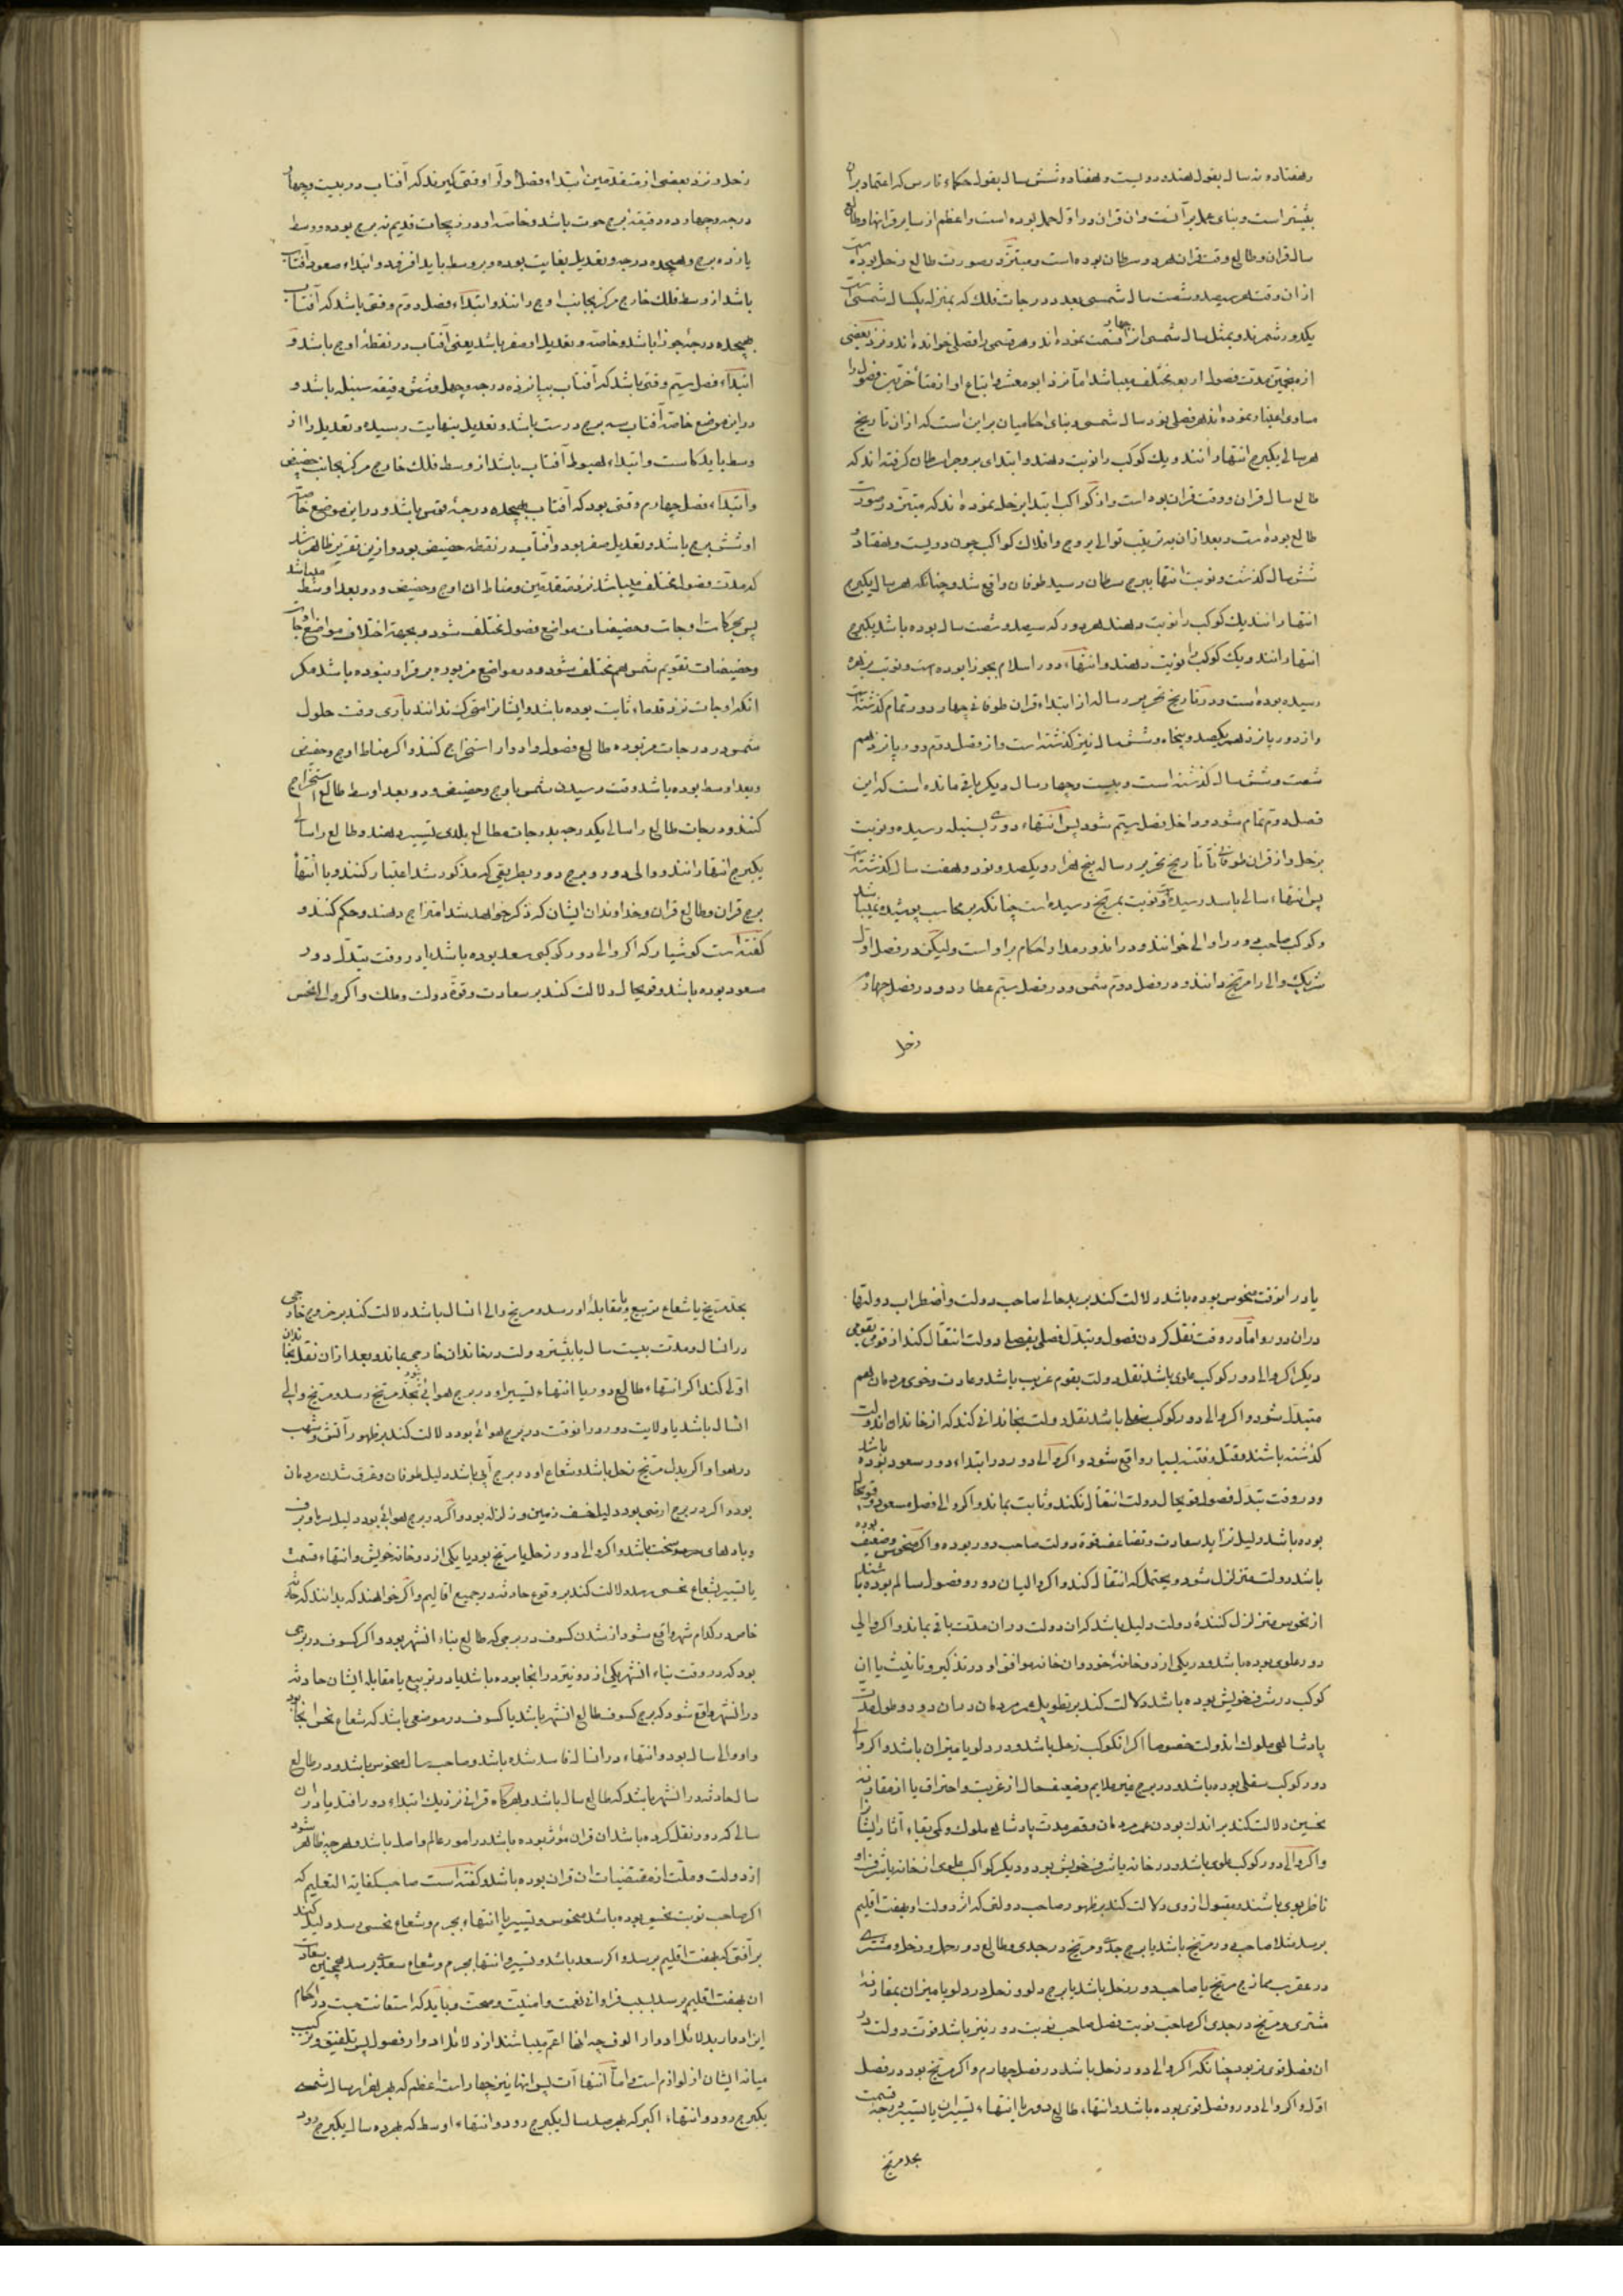 و هفتاد و نه سال بقول هند و دویست و هفتاد و شش سال بقول حکماء فارس که اعتماد بران
بیشتر است و بنای عمل بر آنست وان قران در اول حمل بوده است و اعظم از سایر قرانها و طالع
سال قران و طالع وقت قران هر دو سرطان بوده است و مبتز در صورت طالع زحل بوده است
از ان وقت هر سیصد و شصت سال شمسی بعدد درجات فلک که بمنزله یکسال شمسی است
یکدور شمرند و بمثل سال شمسی انرا چهار قسمت نموده اند و هر قسمی را فصلی خوانده اند و نزد بعضی
از منجمین مدت فصول اربعه مختلف میباشد اما نزد ابو معشر و اتباع او از متأخرین فصول را
مساوی اعتبار نموده اند هر فصلی نود سال شمسی و بنای احکامیان براین است که از ان تاریخ
هر سالی یکبرج انتها دانند و یک کوکب را نوبت دهند و ابتدای بروج از سرطان گرفته اند که
طالع سال قران و وقت قران بوده است و از کواکب ابتدا بزحل نموده اند که مبتز در صورت
طالع بوده است و بعد ازان به ترتیب توالی بروج و افلاک کواکب چون دویست و هفتاد و
شش سال گذشت و نوبت انتها ببرج سرطان رسید طوفان واقع شد و چنانکه هر سال یکبرج
انتها دانند یک کوکب را نوبت دهند هر دور که سیصد و شصت سال بوده باشد یکبرج
انتها دانند و یک کوکب را نوبت دهند و انتهاء دور اسلام بجوزا بوده است و نوبت بزهره
رسیده بوده است و در تاریخ تحریر رساله از ابتداء قران طوفانی چهارده دور تمام گذشته است
و از دور پانزدهم یکصد و پنجاه و شش سال نیز گذشته است و از فصل دوم دور پانزدهم
شصت و شش سال گذشته است و بیست و چهار سال دیگر باقی مانده است که این
فصل دوم تمام شود و داخل فصل سیم شود پس انتهاء دوری بسنبله رسیده و نوبت
بزحل و از قران طوفانی تا تاریخ تحریر رساله پنج هزار و یکصد و نود و هفت سال گذشته است
پس انتهاء سالی باسد رسیده و نوبت بمریخ رسیده است چنانکه بر محاسب پوشیده نمیباشد
و کوکب صاحب دور را والی خوانند و در اندور مدار احکام بر او است ولیکن در فصل اول
شریک والی را مریخ دانند و در فصل دوم شمس و در فصل سیم عطارد و در فصل چهارم
زحل
زحل و نزد بعضی از متقدمین ابتداء فصل اول وقتی گیرند که آفتاب در بیست و چهار
درجه و چهار ده دقیقه برج حوت باشد و خاصه او در زیجات قدیم نه برج بوده و وسط
یازده برج و هیجده درجه و تعدیل بغایت بوده و بر وسط باید افزود و ابتداء صعود آفتاب
باشد از وسط فلک خارج مرکز بجانب اوج دانند و ابتداء فصل دوم وقتی باشد که آفتاب
هیجده درجه جوزا باشد و خاصه و تعدیل او صفر باشد یعنی آفتاب در نقطه اوج باشد و
ابتداء فصل سیم وقتی باشد که آفتاب بپانزده درجه و چهل و شش دقیقه سنبله باشد و
دراین موضع خاصه آفتاب سه برج درست باشد و تعدیل بنهایت رسیده و تعدیل را از
وسط باید کاست و ابتداء هبوط آفتاب باشد از وسط فلک خارج مرکز بجانب حضیض
و ابتداء فصل چهارم وقتی بود که آفتاب بهیجده درجه قوس باشد و دراین موضع خاصه
او شش برج باشد و تعدیل صفر بود و آفتاب در نقطه حضیض بود و ازین تقریر ظاهر شد
که مدت فصول مختلف میباشد نزد متقدمین و مناط ان اوج و حضیض و دو بعد اوسط میباشد
پس بحرکات اوجات و حضیضات مواضع فصول مختلف شود و بجهة اختلاف مواضع اوجات
و حضیضات تقویم شمس هم مختلف شود و در مواضع مزبوره برقرار نبوده باشد مگر
انکه اوجات نزد قدماء ثابت بوده باشد و ایشانرا متحرک ندانند باری وقت حلول
شمس در درجات مزبوره طالع فصول و ادوار استخراج کنند و اگر مناط اوج و حضیض
و بعد اوسط بوده باشد وقت رسیدن شمس باوج و حضیض و دو بعد اوسط طالع استخراج
کنند و درجات طالع را سالی یکدرجه بدرجات مطالع بلدی تسییر دهند و طالع را سالی
یکبرج انتها دانند و والی دور و برج دور بطریقی که مذکور شد اعتبار کنند و با انتهاء
برج قران و طالع قران و خداوندان ایشان که ذکر خواهد شد امتزاج دهند و حکم کنند و
گفته است کوشیار که اگر والی دور کوکبی سعد بوده باشد یا در وقت تبدل دور
مسعود بوده باشد و قویحال دلالت کند بر سعادت و قوة دولت و ملک و اگر والی نحس
یا در انوقت منحوس بوده باشد دلالت کند بر بدحالی صاحب دولت و اضطراب دولتها
دران دور و اما در وقت نقل کردن فصول و تبدل فصلی بفصلی دولت انتقال کند از قومی بقومی
دیگر اگر والی دور کوکب علوی باشد نقل دولت بقوم غریب باشد و عادت و خوی مردمان هم
متبدل شود و اگر والی دور کوکب سفلی باشد نقل دولت بخاندانی کند که از خاندان اندولت
گذشته باشند و قتل و فتنه بسیار واقع شود و اگر والی دور در ابتداء دور سعود بوده باشد
و در وقت تبدل فصول قویحال دولت انتقال نکند و ثابت بماند و اگر والی فصل مسعود و قویحال
بوده باشد دلیل تزاید سعادت و تضاعف قوة دولت صاحب دور بوده و اگر منحوس و ضعیف بوده
باشد دولت متزلزل شود و یحتمل که انتقال کند و اگر والیان دور و فصول سالم بوده باشند
از نحوس متزلزل کنندهٔ دولت دلیل باشد که ان دولت دران مدت باقی بماند و اگر والی
دور علوی بوده باشد و در یکی از دو خانهٔ خود وان خانه موافق او در تذکیر و تانیث یا ان
کوکب در شرف خویش بوده باشد دلالت کند بر تطویل عمر مردمان دران دور و طول مدت
پادشاهی ملوک اندولت خصوصا اگر انکوکب زحل باشد و در دلو یا میزان باشد و اگر والی
دور کوکب سفلی بوده باشد و در برج غیر ملایم و ضعیف حال از غربت و احتراق یا از مقارنه
نحسین دلالت کند بر اندک بودن عمر مردمان و قصر مدت پادشاهی ملوک و کمی بقاء آثار ایشان
و اگر والی دور کوکب علوی باشد و در خانه یا شرف خویش بود و دیگر کواکب علوی از خانه یا شرف او
ناظر بوی باشند و مقبول از وی دلالت کند بر ظهور صاحب دولتی که اثر دولت او بهفت اقلیم
برسد مثلا صاحب دور مریخ باشد یا برج جدی و مریخ در جدی و طالع دور حمل و زحل و مشتری
در عقرب ممازج مریخ یا صاحب دور زحل باشد یا برج دلو و زحل در دلو یا میزان بمقارنهٔ
مشتری و مریخ در جدی اگر صاحب نوبت فصل صاحب نوبت دور نیز باشد قوت دولت در
ان فصل قوی تر بود چنانکه اگر والی دور زحل باشد در فصل چهارم و اگر مریخ بود در فصل
اول و اگر والی دور و فصل قوی بوده باشد و انتهاء طالع دور یا انتهاء تسییران یا تسییر درجه قسمت
بحد مریخ
بحد مریخ یا شعاع تربیع یا مقابلهٔ او رسد و مریخ والی انسال باشد دلالت کند بر خروج خارجی
در انسال و مدت بیست سال یا بیشتر دولت در خاندان خارجی بماند و بعد ازان نقل بخاندان
اولی کند اگر انتهاء طالع دور یا انتهاء تسییر او در برج هوائی بود بحد مریخ رسد و مریخ والی
انسال باشد یا ولایت دور در انوقت در برج هوائی بود دلالت کند بر ظهور آتش و شهب
در هوا و اگر بدل مریخ زحل باشد و شعاع او در برج آبی باشد دلیل طوفان و غرق شدن مردمان
بود و اگر در برج ارضی بود دلیل خسف زمین و زلزله بود و اگر در برج هوائی بود دلیل سرما و برف
و بادهای سخت باشد و اگر والی دور زحل یا مریخ بود یا یکی از دو خانه خویش و انتهاء قسمت
یا تسییر بشعاع نحسی رسد دلالت کند بر وقوع حادثه در جمیع اقالیم و اگر خواهند که بدانند که حادثه
خاص در کدام شهر واقع شود از شدن کسوف در برجی که طالع بناء انشهر بود و اگر کسوف در برجی
بود که در وقت بناء انشهر یکی از دو نیّر در انجا بوده باشد یا در تربیع یا مقابله ایشان حادثه
در انشهر واقع شود که برج کسوف طالع انشهر باشد یا کسوف در موضعی باشد که شعاع نحس انجا بود
و او والی سال بود و انتهاء در انسال فاسد شده باشد و صاحب سال منحوس باشد و در طالع
سال حادثه در انشهر باشد که طالع سال باشد و هرگاه قرانی نزدیک ابتداء دور افتد یا دران
سالی که دور نقل کرده باشد ان قران مؤثر بوده باشد در امور عالم و اصل باشد و هرچه ظاهر شود
از دولت و ملت از مقتضیات ان قران بوده باشد و گفته است صاحب کفایة التعلیم که
اگر صاحب نوبت نحس بوده باشد منحوس و تسییر یا انتهاء بجرم و شعاع نحسی رسد دلیل کند
بر آفتی که بهفت اقلیم برسد و اگر سعد باشد و تسییر و انتها بجرم و شعاع سعدی برسد همچنین سعادت
ان بهفت اقلیم برسد بسبب فراوانی نعمت و امنیت و صحت و بباید که استعانت جست در احکام
این ادوار بدلائل ادوار الوف چه انها اعم میباشند از دلائل ادوار فصول پس تلفیق و ترکیب
میانه ایشان از لوازم است و اما انتهاآت پس انها نیز چهار است اعظم که بهر هزار سال شمسی
یکبرج رود و انتهاء اکبر که بهر صد سال یکبرج رود و انتهاء اوسط که بهر ده سال یکبرج رود